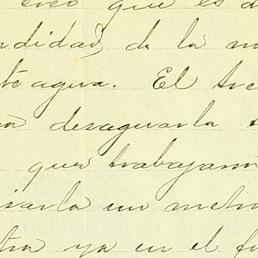 creo que es d
ndidad, de la m
to agua. El tre
a desaguarla
que trabajam
sarla un metro
tra ya en el f